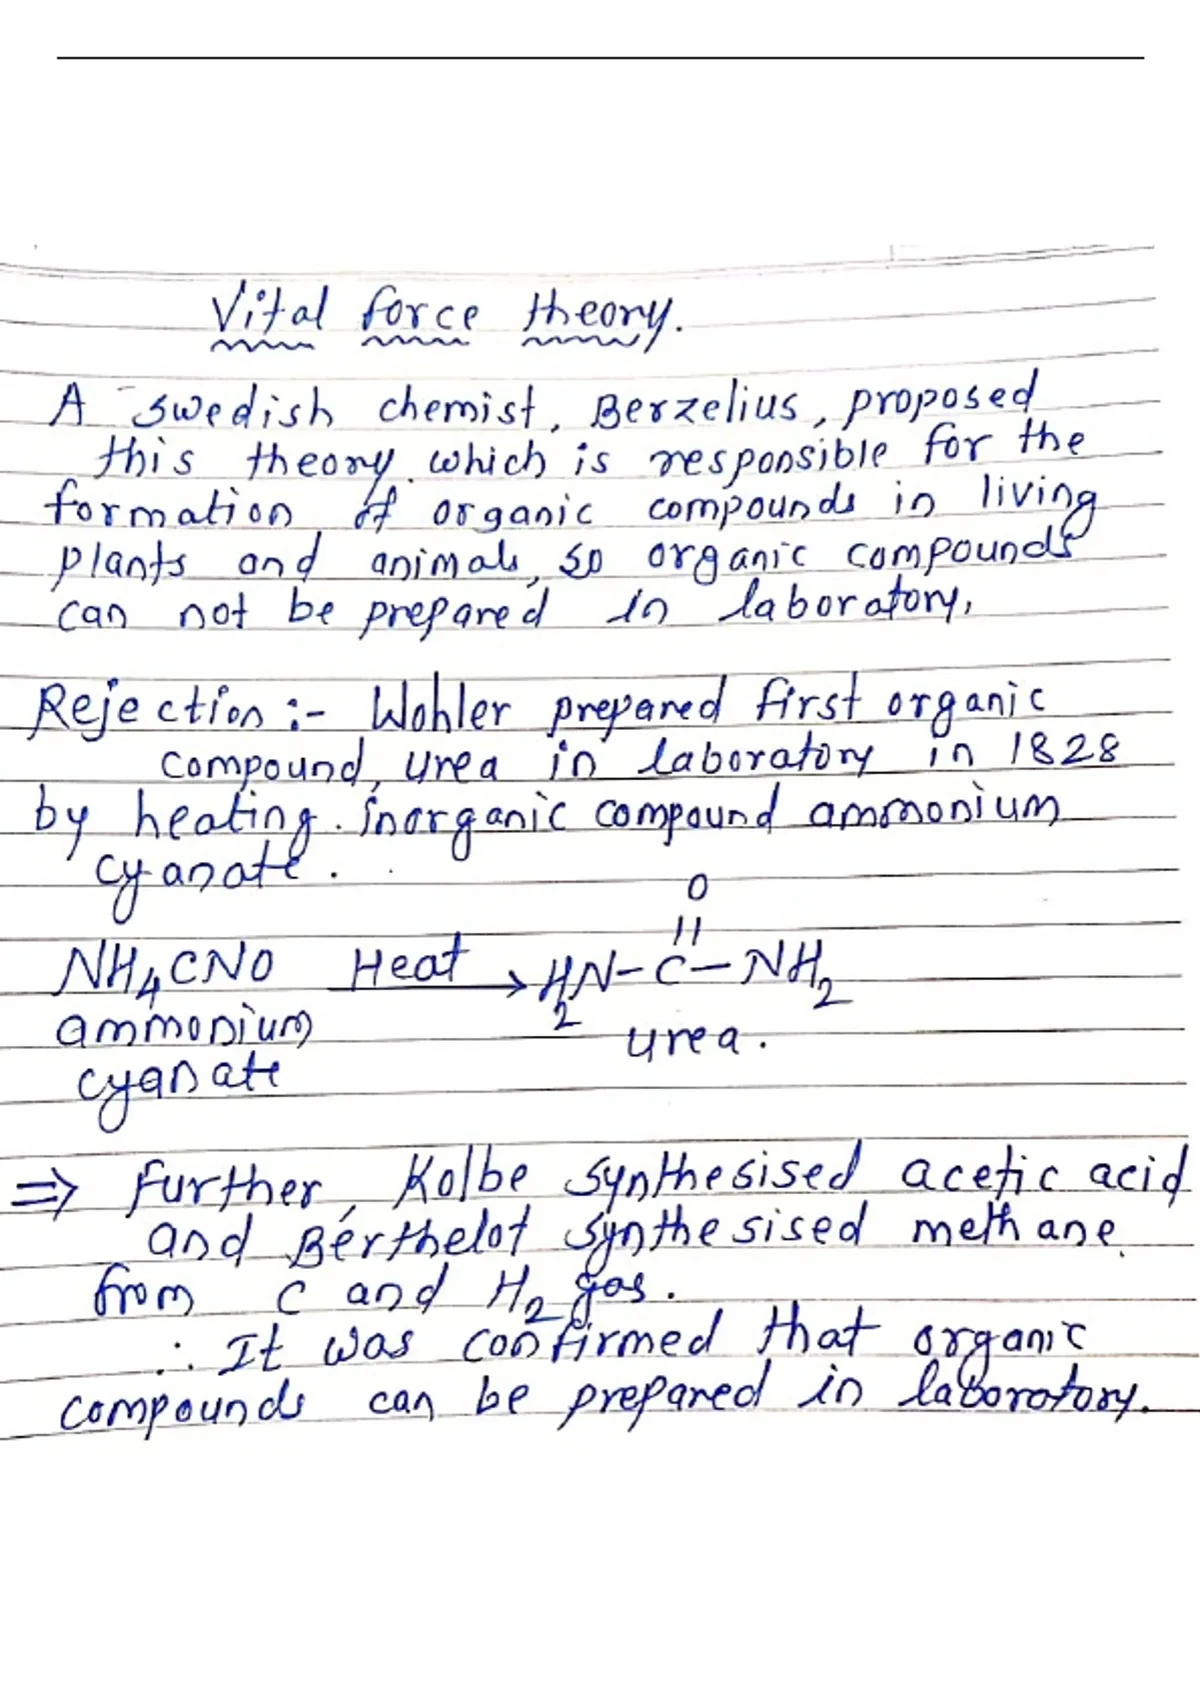 Vital force theory.
A Swedish chemist, Berzelius, proposed
this theory which is responsible for the
formation of organic compounds in living
plants and animals, so organic compounds
can not be prepared in laboratory.
Rejection :- Wohler prepared first organic
compound, urea in laboratory in 1828
by heating inorganic compound ammonium
cyanate.
O
||
NH4CNO Heat → H2N-C-NH2
ammonium urea.
cyanate
⇒ Further, Kolbe synthesised acetic acid
and Berthelot synthesised methane
from C and H2 gas.
∴ It was confirmed that organic
compounds can be prepared in laboratory.